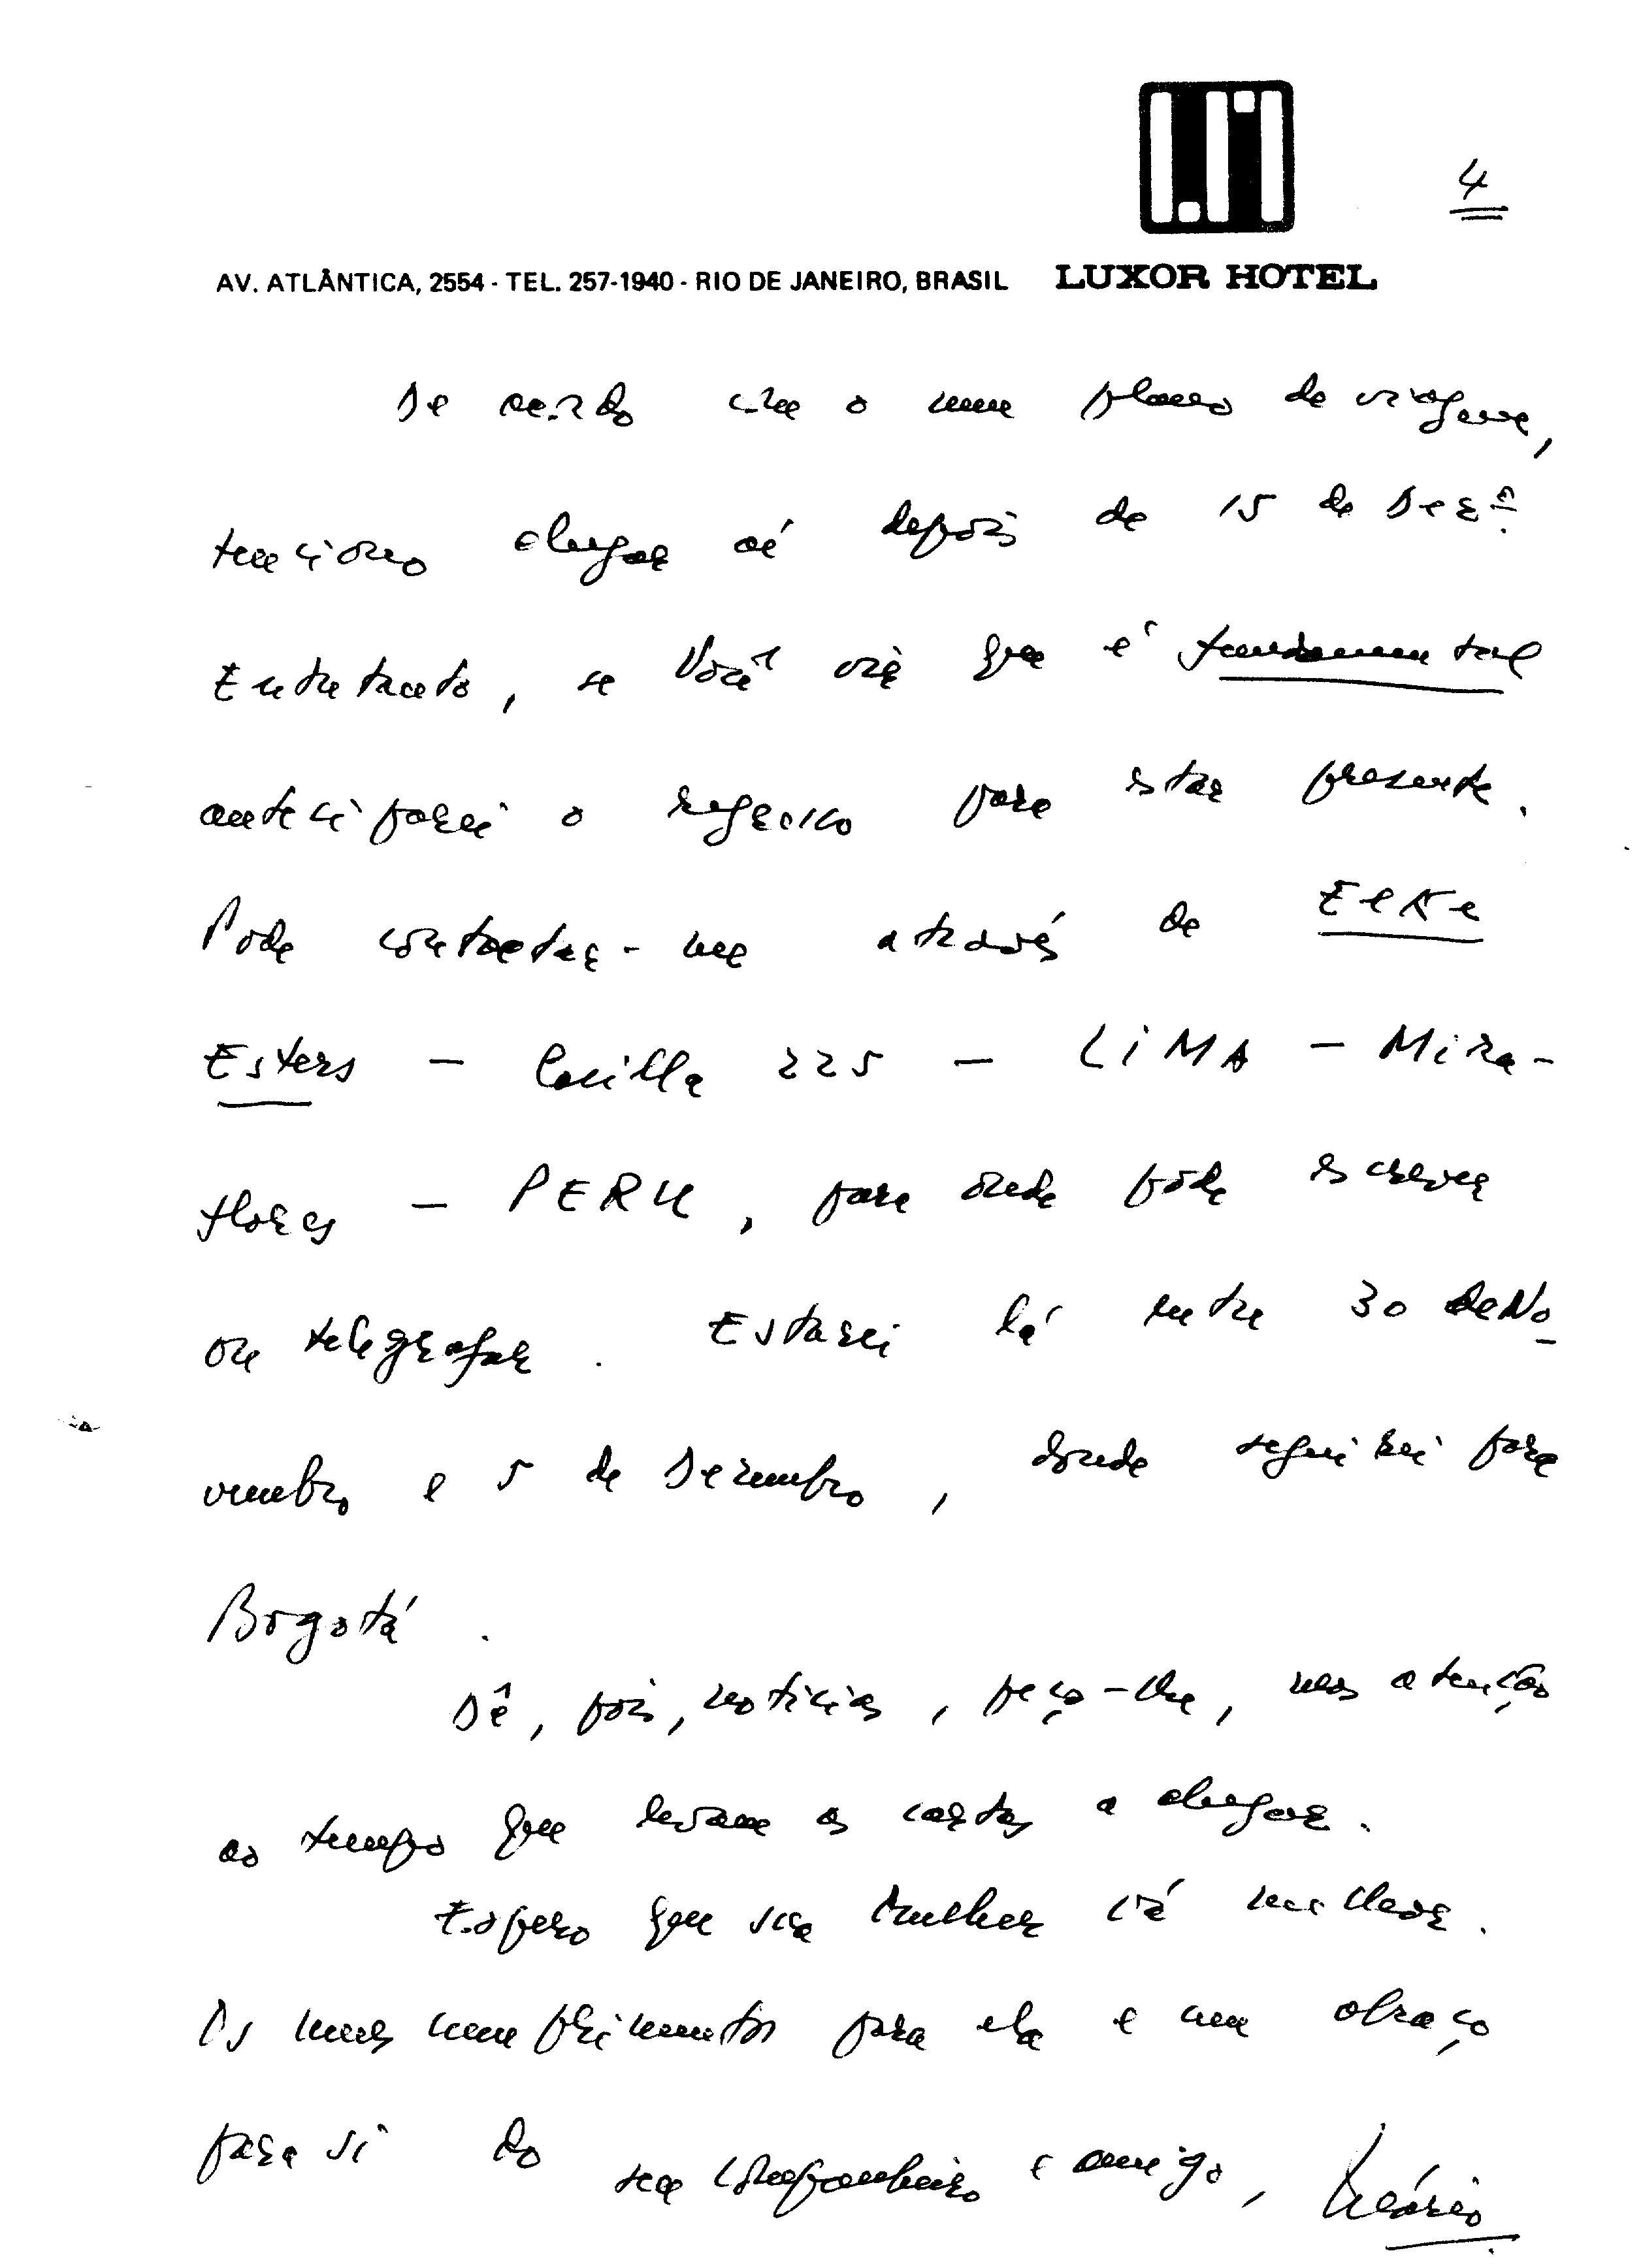 4
AV. ATLÂNTICA, 2554 - TEL. 257-1940 - RIO DE JANEIRO, BRASIL LUXOR HOTEL
De acordo com o meu plano de viagem,
tenciono chegar aí depois de 15 de Dezº.
Entretanto, se Você vir que é fundamental
anteciparei o regresso para estar presente.
Pode contactar-me através de Elke
Esters - Casilla 225 - LiMA - Mira-
flores - PERU, para onde pode escrever
ou telegrafar. Estarei lá entre 30 de No-
vembro e 5 de Dezembro, donde seguirei para
Bogotá.
Dê, pois, noticias, peço-lhe, mas atenção
ao tempo que levam as cartas a chegar.
Espero que sua Mulher vá melhor.
Os meus cumprimentos para ela e um abraço
para si do seu companheiro e amigo, Mário